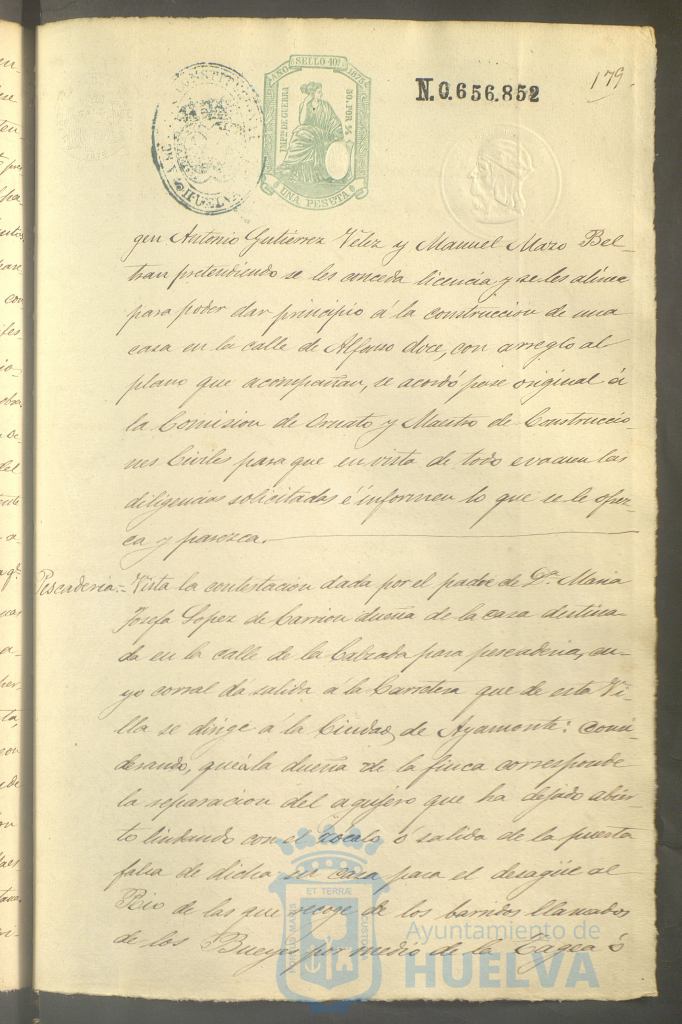 179.
N.0.656.852
AÑO SELLO 10º 1875
IMPtO DE GUERRA
50 POR %
UNA PESETA
HUELVA
gen Antonio Gutiérrez Veliz y Manuel Mazo Bel-
tran pretendiendo se les conceda licencia y se les alinee
para poder dar principio á la construccion de una
casa en la calle de Alfonso doce, con arreglo al
plano que acompañan, se acordó pase original á
la Comision de Ornato y Maestro de Construccio-
nes Civiles para que en vista de todo evacuen las
diligencias solicitadas é informen lo que se le ofrez-
ca y parezca.
Pescadería.= Vista la contestacion dada por el padre de Dª. Maria
Josefa Lopez de Carrion dueña de la casa destina-
da en la calle de la Calzada para pescaderia, cu-
yo corral dá salida á la Carretera que de esta Vi-
lla se dirige á la Ciudad de Ayamonte: Consi-
derando, que á la dueña de la finca corresponde
la reparacion del agujero que ha dejado abier-
to lindando con el zócalo ó salida de la puerta
falsa de dicha su casa para el desagüe al
Rio de las que recoge de los barridos llamados
de los Bueyes por medio de la Tagea ó
ET TERRÆ
Ayuntamiento de
HUELVA